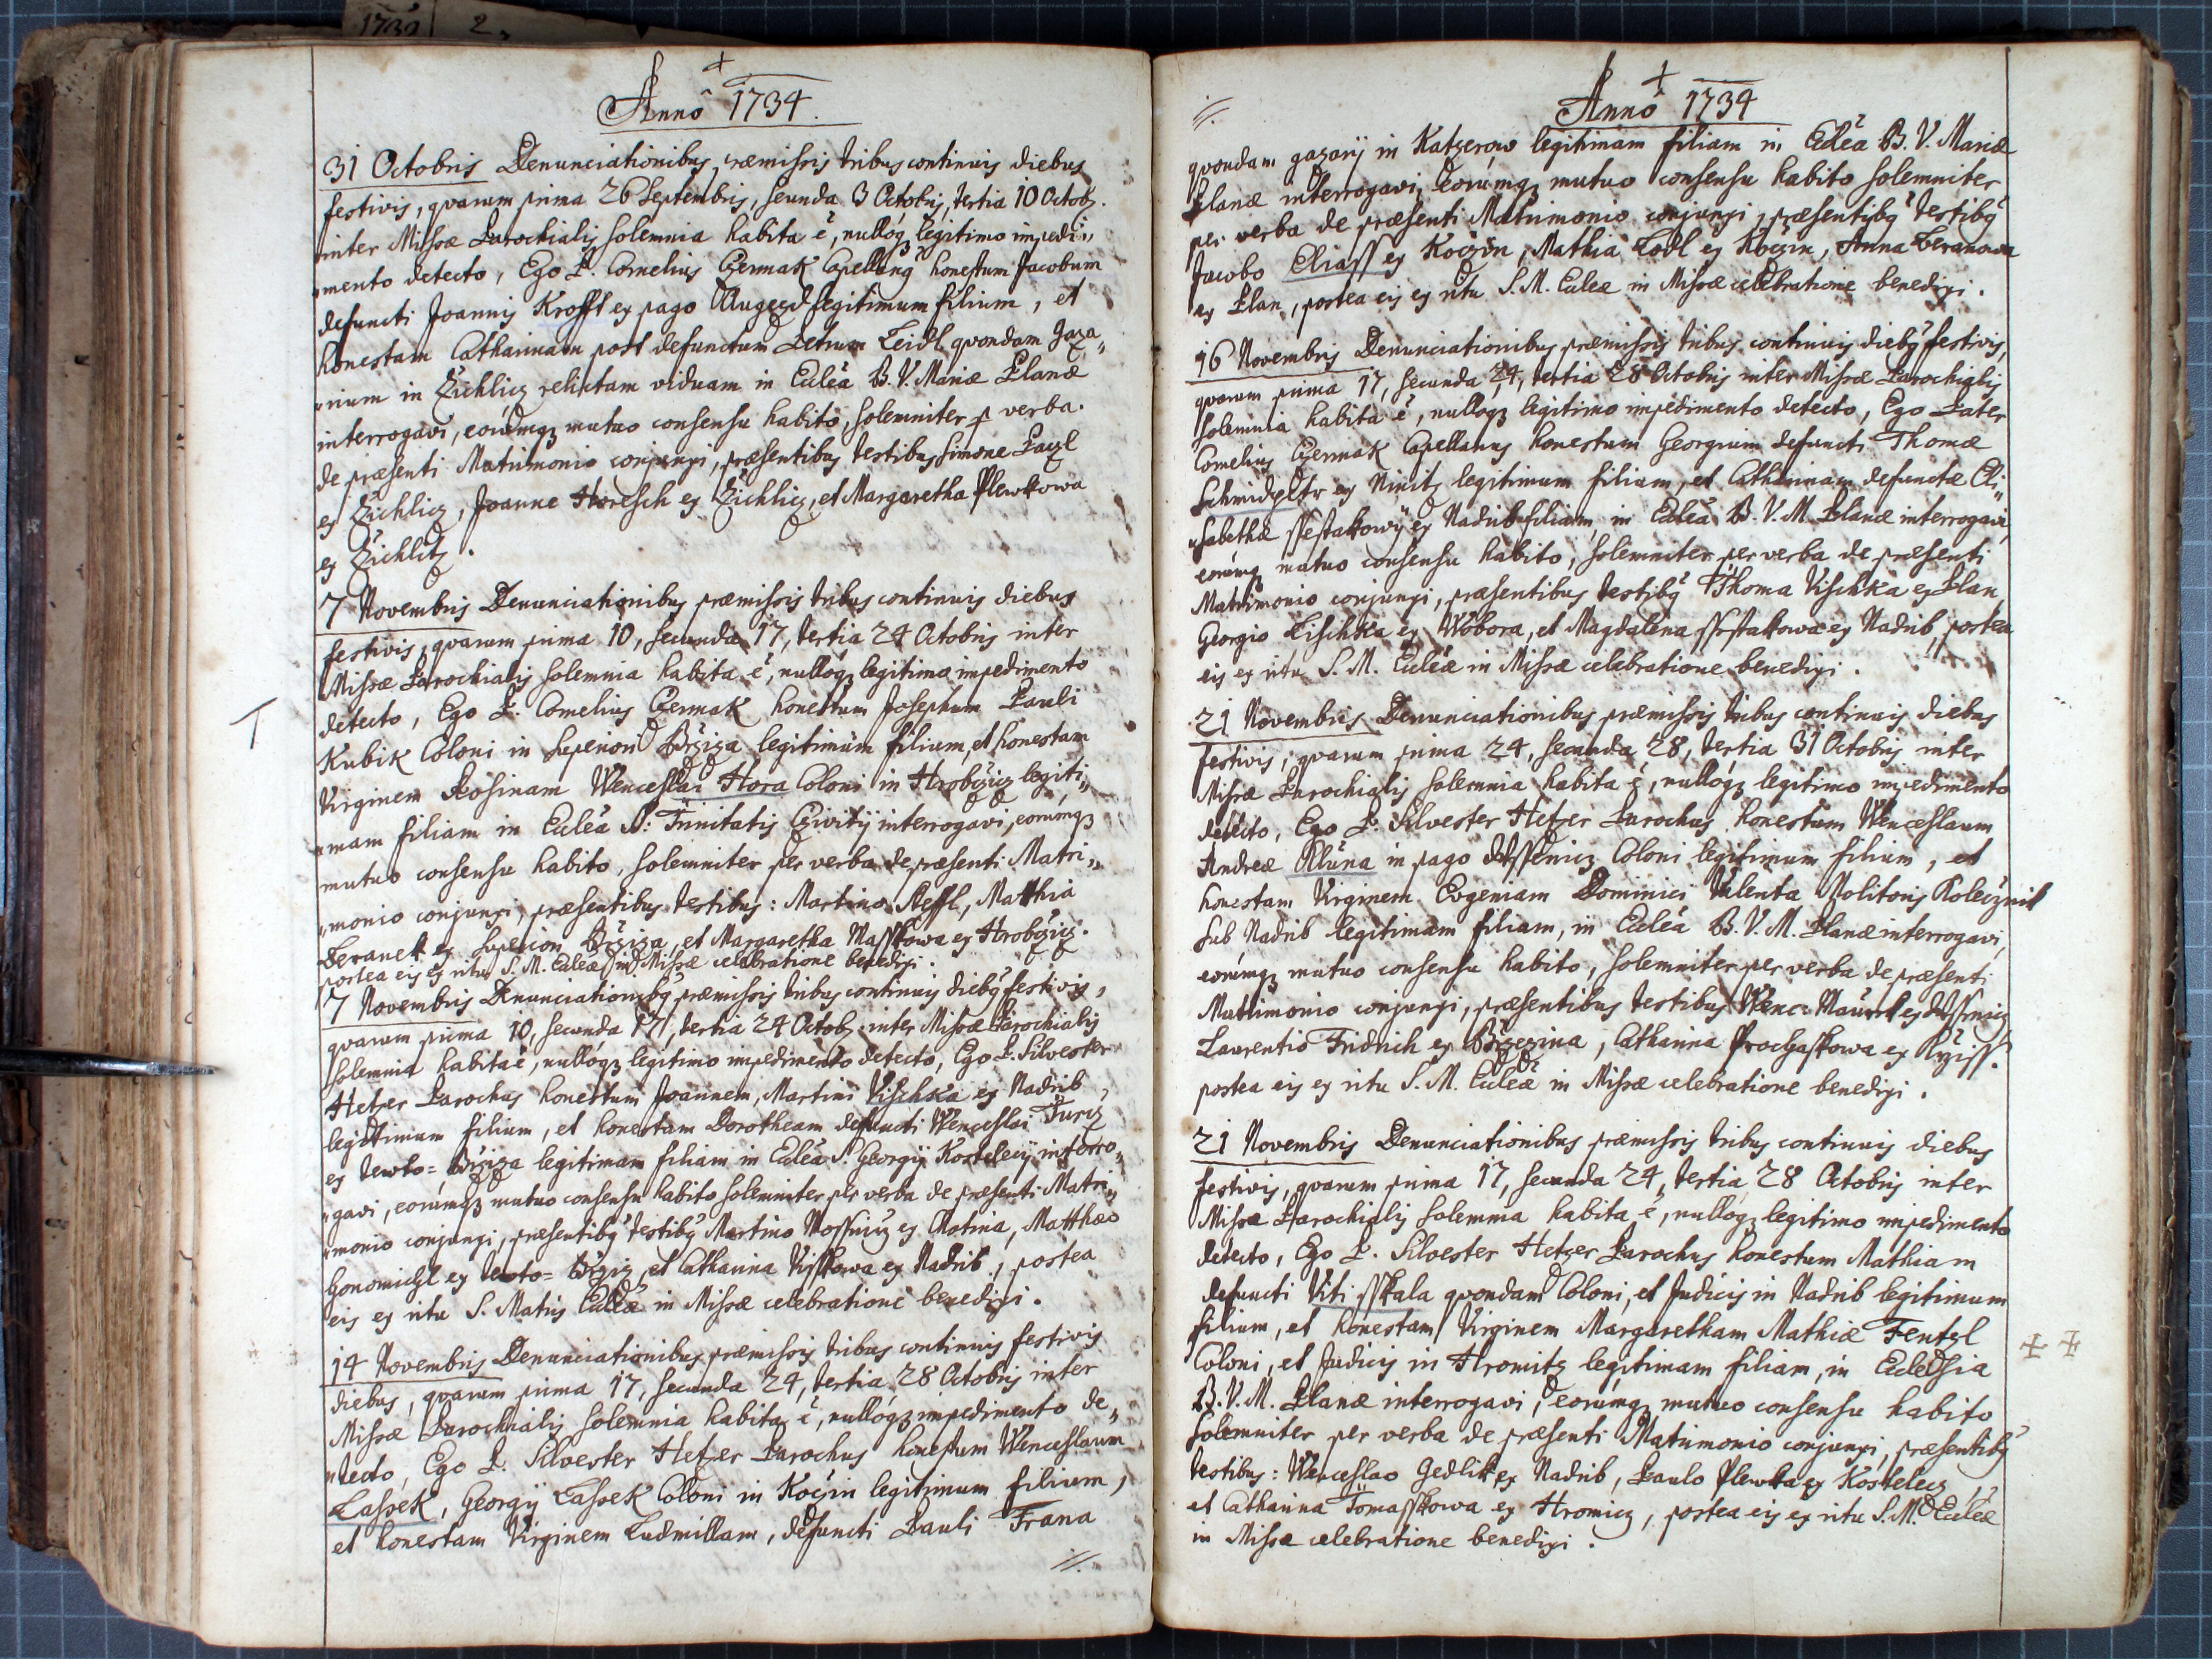 1732 2
Annô 1734.
31 Octobris Denunciationibus præmissis tribus continuis diebus
festivis, qvarum prima 26 Septembris, secunda 3 Octobris, tertia 10 Octob.
inter Missæ Parochialis solemnia habita ē, nullóq; legitimo impedi„
„mento detecto, Ego P. Cornelius Czermak Capellanq honestum Jacobum
defuncti Joannis Krofft ex pago Augezd legitimum filium, et
honestam Catharinam post defunctum Petrum Leidl qvondam gaza„
„rium in Zichlicz relictam viduam in Eccleā B. V. Mariæ Planæ
interrogavi, eorúmq; mutuo consensu habito, solemniter p verba
de præsenti Matrimonio conjunxi, præsentibus testibus Simone Pauzl
ex Zichlicz, Joanne Horesch ex Zichlicz, et Margaretha Plewkowa
ex Zichlitz.
7 Novembris Denunciationibus præmissis tribus continuis diebus
festivis, qvarum prima 10, secunda 17, tertia 24 Octobris inter
Missæ Parochialis solemnia habita ē, nullóq; legitimo impedimento
detecto, Ego P. Cornelius Czermak honestum Josephum Pauli
Kubik Coloni in Superiori Brziza legitimum filium, et honestam
Virginem Rosinam Wenceslai Hora Coloni in Hrobczicz legiti„
„mam filiam in Eccleā SS: Trinitatis Cziwitij interrogavi, eorúmq;
mutuo consensu habito, solemniter per verba de præsenti Matri„
„monio conjunxi, præsentibus testibus: Martino Steffl, Matthia
Beranek ex Superiori Brziza, et Margaretha Masskowa ex Hrobczicz.
postea eis ex ritu S. M. Eccleæ in Missæ celebratione benedixi.
7 Novembris Denunciationibq præmissis tribus continuis diebq festivis,
qvarum prima 10, secunda 17, tertia 24 Octob. inter Missæ Parochialis
solemnia habita ē, nullóq; legitimo impedimento detecto, Ego P. Silvester
Hetzer Parochus honestum Joannem, Martini Vischka ex Nadrib
legitimum filium, et honestam Dorotheam defuncti Wenceslai Turcz
ex Tewto= Brziza legitimam filiam in Eccleā S. Georgij Kostelecij interro„
„gavi, eorúmq; mutuo consensu habito solemniter per verba de præsenti Matri„
„monio conjunxi, præsentibq testibq Martino Mossnicz ex Chotina, Matthæo
Honomichl ex Tewto= Brziz, et Catharina Visskowa ex Nadrib, postea
eis ex ritu S. Matris Eccleæ in Missæ celebratione benedixi.
14 Novembris Denunciationibus præmissis tribus continuis festivis
diebus, qvarum prima 17, secunda 24, tertia 28 Octobris inter
Missæ Parochialis solemnia habita ē, nullóq; impedimento de„
„tecto, Ego P. Silvester Hetzer Parochus honestum Wenceslaum
Lassek, Georgij Lassek Coloni in Koczin legitimum filium,
et honestam Virginem Ludmillam, defuncti Pauli Frana
·//·
Annô 1734
·//·
qvondam gazarij in Katzerow legitimam filiam in Eccleā B. V. Mariæ
Planæ interrogavi, eorúmq; mutuo consensu habito solemniter
per verba de præsenti Matrimonio conjunxi, præsentibq testibq
Jacobo Eliass ex Koczin, Mathia Lodl ex Koczin, Anna Beranowa
ex Plan, postea eis ex ritu S. M. Eccleæ in Missæ celebratione benedixi.
16 Novembris Denunciationibus præmissis tribus continuis diebq festivis,
qvarum prima 17, secunda 24, tertia 28 Octobris inter Missæ Parochialis
solemnia habita ē, nullóq; legitimo impedimento detecto, Ego Pater
Cornelius Czermak Capellanus honestum Georgium defuncti Thomæ
Schmidpeltr ex Ninitz legitimum filium, et Catharinam defunctæ Eli„
„sabethæ Ssestakowÿ ex Nadrib filiam, in Eccleā B. V. M. Planæ interrogavi,
eorúmq; mutuo consensu habito, solemniter per verba de præsenti
Matrimonio conjunxi, præsentibus testibq Thoma Vischka ex Plan,
Georgio Lischka ex Wobora, et Magdalena Ssestakowa ex Nadrib, postea
eis ex ritu S. M. Eccleæ in Missæ celebratione benedixi.
21 Novembris Denunciationibus præmissis tribus continuis diebus
festivis, qvarum prima 24, secunda 28, tertia 31 Octobris inter
Missæ Parochialis solemnia habita ē, nullóq; legitimo impedimento
detecto, Ego P. Silvester Hetzer Parochus honestum Wenceslaum
Andreæ Kluna in pago Wssenicz Coloni legitimum filium, et
honestam Virginem Evgeniam Dominici Valenta Molitoris Kolecznik
sub Nadrib legitimam filiam, in Eccleā B. V. M. Planæ interrogavi,
eorúmq; mutuo consensu habito, solemniter per verba de præsenti
Matrimonio conjunxi, præsentibus testibus Wenc: Maurel ex Wssenicz
Laurentio Fridrich ex Brzezina, Catharina Prochaskowa ex Rziss.
postea eis ex ritu S. M. Eccleæ in Missæ celebratione benedixi.
21 Novembris Denunciationibus præmissis tribus continuis diebus
festivis, qvarum prima 17, secunda 24, tertia 28 Octobris inter
Missæ Parochialis solemnia habita ē, nullóq; legitimo impedimento
detecto, Ego P. Silvester Hetzer Parochus honestum Mathiam
defuncti Viti Sskala qvondam Coloni, et Judicis in Nadrib legitimum
filium, et honestam Virginem Margaretham Mathiæ Fentzl
Coloni, et Judicis in Hromitz legitimam filiam, in Ecclesia
B. V. M. Planæ interrogavi, eorúmq; mutuo consensu habito
solemniter per verba de præsenti Matrimonio conjunxi, præsentibq
testibus: Wenceslao Gedlik ex Nadrib, Paulo Plewka ex Kostelecz,
et Catharina Tomasskowa ex Hromicz, postea eis ex ritu S. M. Eccleæ
in Missæ celebratione benedixi.